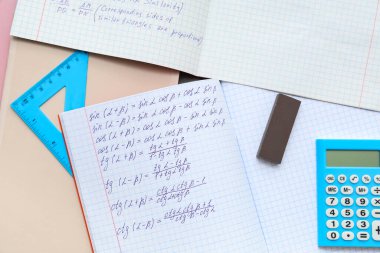 PD₁ = DN (Corresponding sides of
similar triangles are proportional)
sin (α+β) = sin α cos β + cos α sin β
sin (α-β) = sin α cos β - cos α sin β
cos (α+β) = cos α cos β - sin α sin β
cos (α-β) = cos α cos β + sin α sin β
tg (α+β) = tg α + tg β / 1 - tg α tg β
tg (α-β) = tg α - tg β / 1 + tg α tg β
ctg (α+β) = ctg α ctg β - 1
ctg (α-β) = ctg α ctg β + 1 / ctg β - ctg α